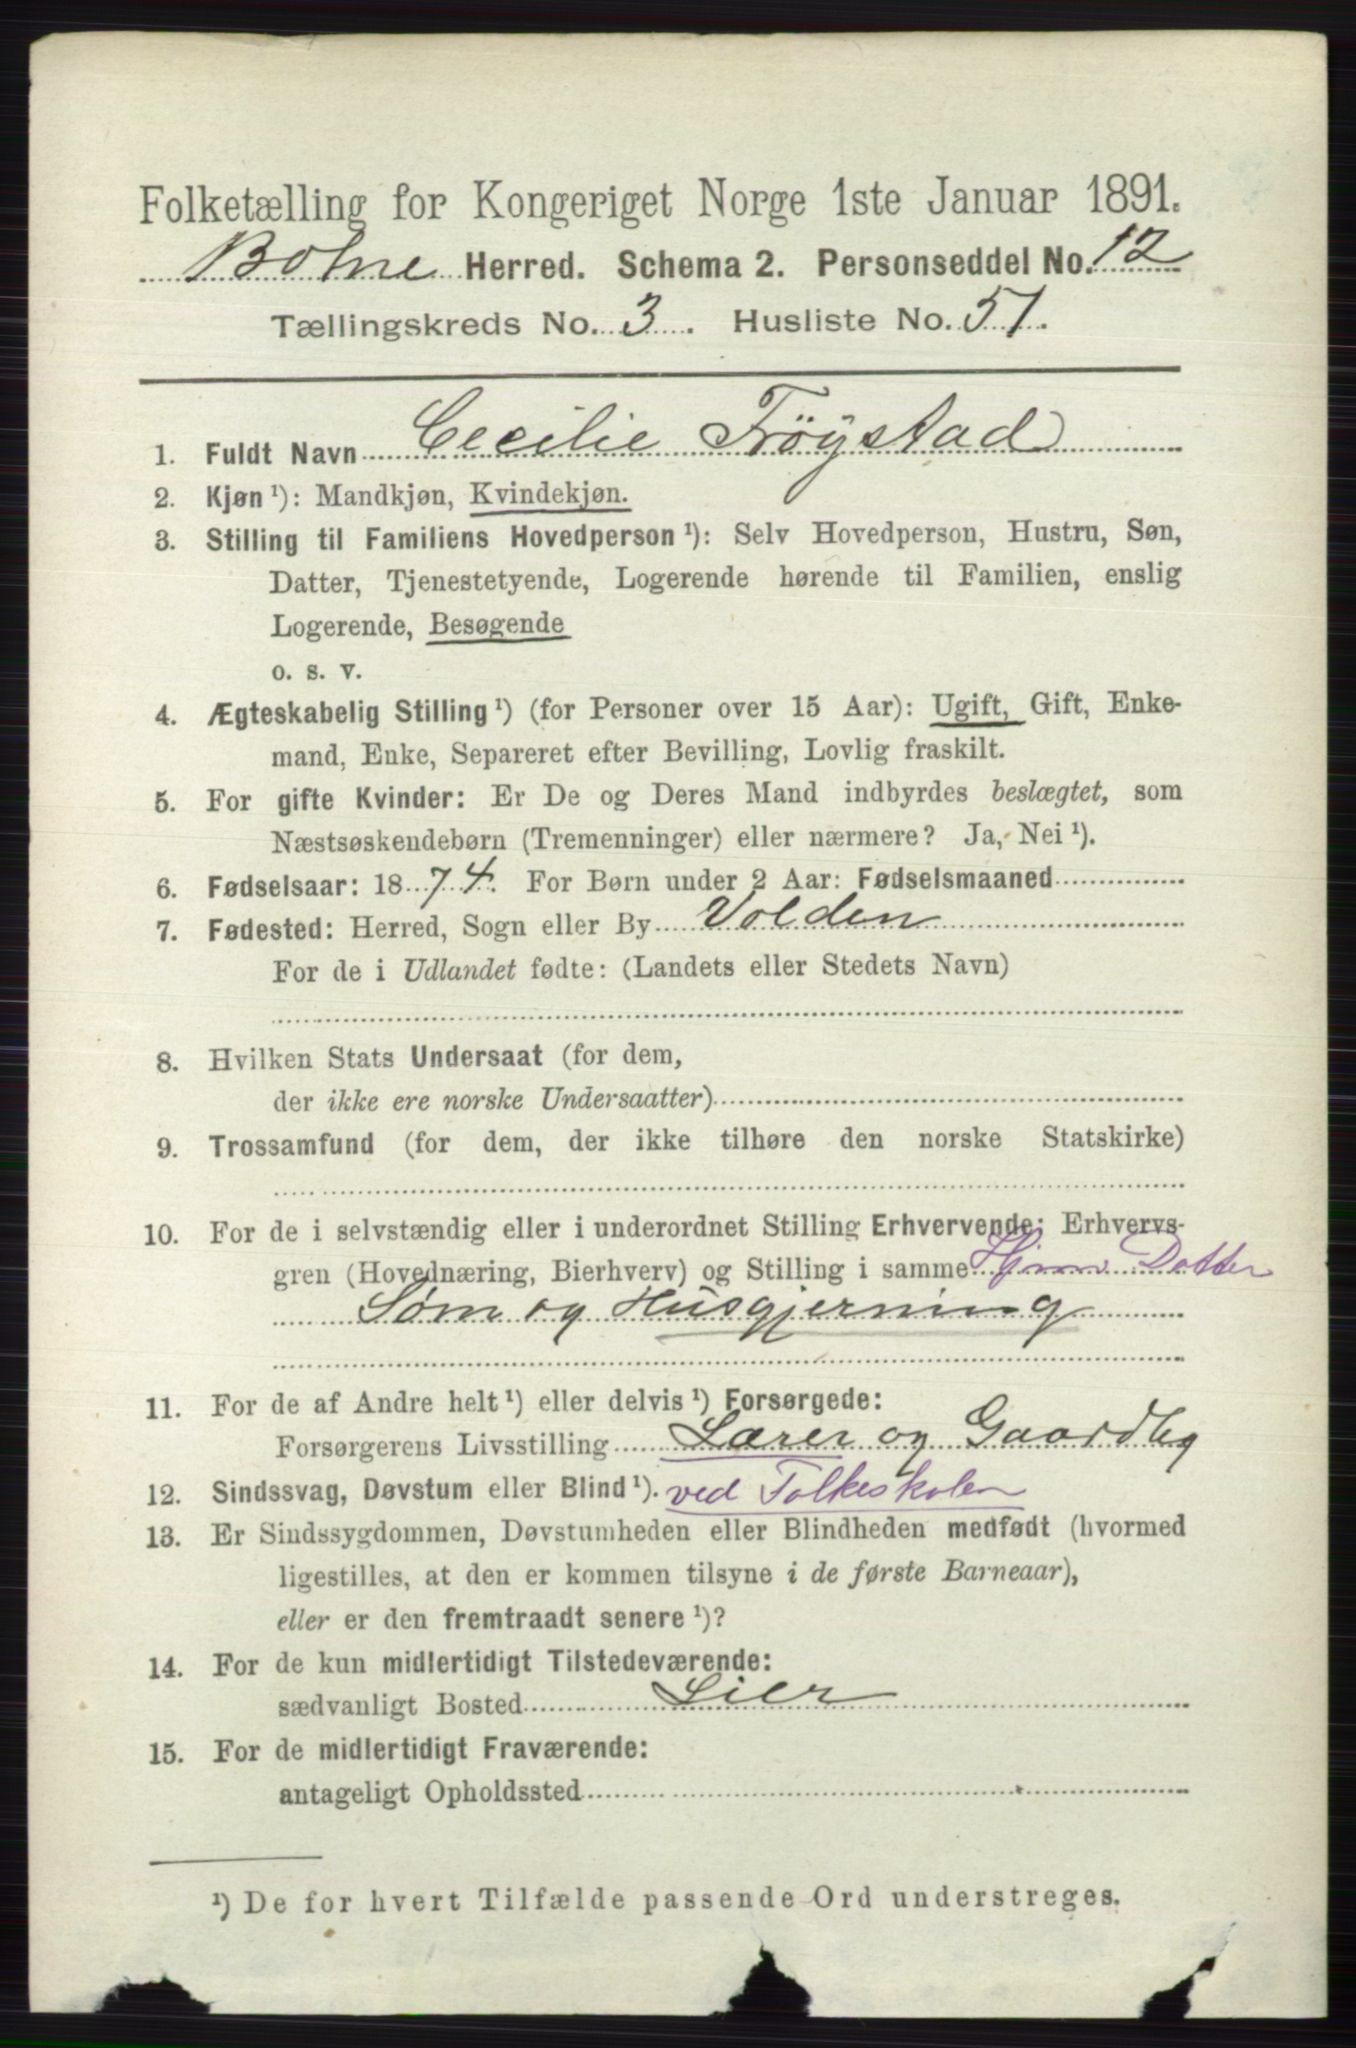 Folketælling for Kongeriget Norge 1ste Januar 1891.
Botne Herred. Schema 2. Personseddel No. 12
Tællingskreds No. 3. Husliste No. 51.
1. Fuldt Navn Cecilie Tröystad
2. Kjøn ¹): Mandkjøn, Kvindekjøn.
3. Stilling til Familiens Hovedperson ¹): Selv Hovedperson, Hustru, Søn,
Datter, Tjenestetyende, Logerende hørende til Familien, enslig
Logerende, Besøgende
o. s. v.
4. Ægteskabelig Stilling ¹) (for Personer over 15 Aar): Ugift, Gift, Enke-
mand, Enke, Separeret efter Bevilling, Lovlig fraskilt.
5. For gifte Kvinder: Er De og Deres Mand indbyrdes beslægtet, som
Næstsøskendebørn (Tremenninger) eller nærmere? Ja, Nei ¹).
6. Fødselsaar: 1874. For Børn under 2 Aar: Fødselsmaaned
7. Fødested: Herred, Sogn eller By Volden
For de i Udlandet fødte: (Landets eller Stedets Navn)
8. Hvilken Stats Undersaat (for dem,
der ikke ere norske Undersaatter)
9. Trossamfund (for dem, der ikke tilhøre den norske Statskirke)
10. For de i selvstændig eller i underordnet Stilling Erhvervende: Erhvervs-
gren (Hovednæring, Bierhverv) og Stilling i samme Hjmv Datter
Søm og Husgjerning
11. For de af Andre helt ¹) eller delvis ¹) Forsørgede:
Forsørgerens Livsstilling Lærer og Gaardbg
12. Sindssvag, Døvstum eller Blind ¹). ved Folkeskolen
13. Er Sindssygdommen, Døvstumheden eller Blindheden medfødt (hvormed
ligestilles, at den er kommen tilsyne i de første Barneaar),
eller er den fremtraadt senere ¹)?
14. For de kun midlertidigt Tilstedeværende:
sædvanligt Bosted Lier
15. For de midlertidigt Fraværende:
antageligt Opholdssted
¹) De for hvert Tilfælde passende Ord understreges.